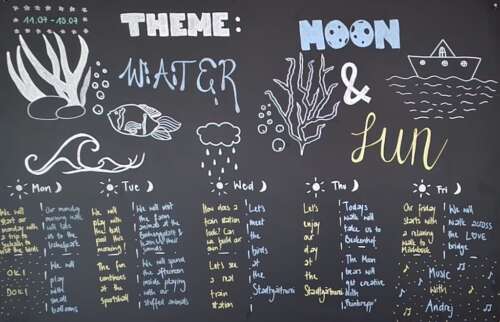 11.07 - 15.07
THEME:
WATER
MOON
&
SUN
Mon
Tue
Wed
Thu
Fri
We will
start our
monday with
a trip to
Our monday
morning walk
will take
us to the
We will
play
with
small
balloons
OKI
DOKI
We will
play
with
the ball
pool this
morning!
The fun
continues
at the
Sportshall
We will visit
the farm
animals of the
We will spend
the afternoon
inside playing
with our
stuffed animals
How does a
train station
look? Can
we build our
own?
Let's see
a real
train
station
Let's
meet
the
birds
at
the
Stadtgärtnerei
Let's
enjoy
our
day
at
the
Stadtgärtnerei
Todays
walk will
take us to
The Moon
bears will
get creative
With
Our Friday
starts with
a relaxing
walk to
We will
walk across
the LOVE
bridge
Music
with
Andrej